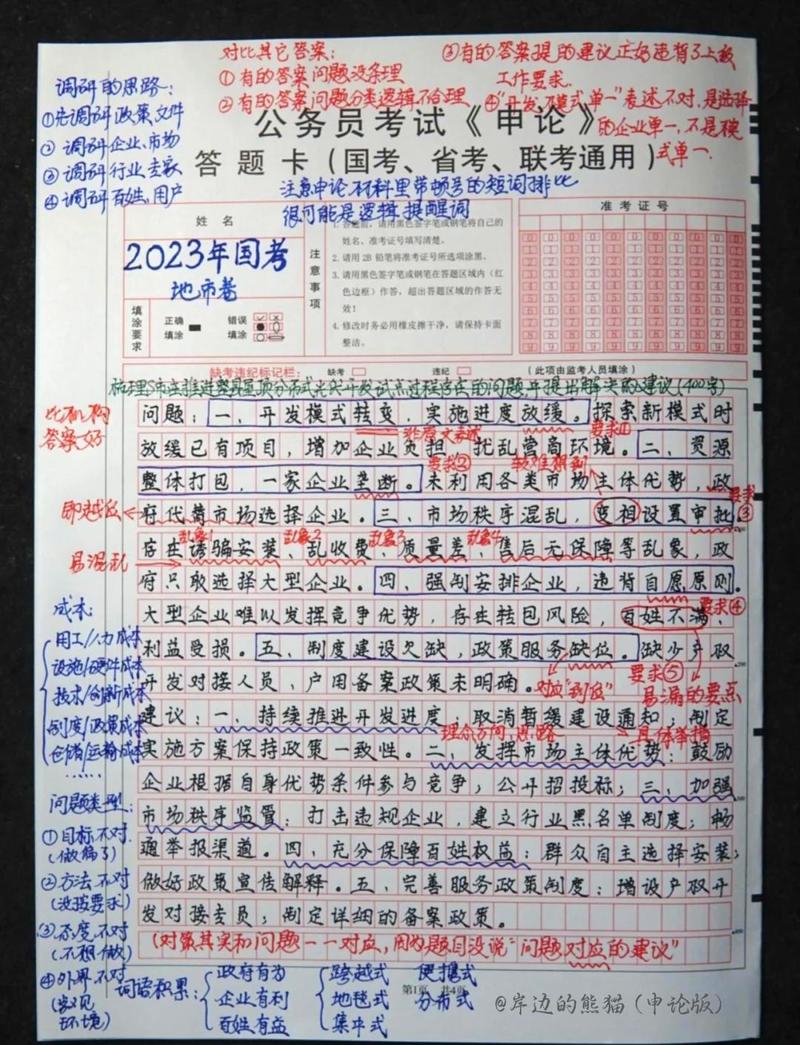 对比其它答案：
①有的答案问题没条理
②有的答案问题分类逻辑不合理
③有的答案提的建议正好违背了上级
工作要求.
④"开发模式单一"表述不对，是选择
的企业单一，不是模
式单一.
调研的思路：
①先调研政策文件
②调研企业、市场
③调研行业、专家
④调研百姓、用户
公务员考试《申论》
答题卡（国考、省考、联考通用）
注意申论材料里带顿号的短词排比
很可能是逻辑提醒词
姓名
2023年国考
地市卷
填涂要求
正确填涂
错误填涂
注意事项
1. 答题前，请用黑色签字笔或钢笔将自己的
姓名、准考证号填写清楚。
2. 请用 2B 铅笔将准考证号所选项涂黑。
3. 请用黑色签字笔或钢笔在答题区域内（红
色边框）作答，超出答题区域的作答无
效！
4. 修改时务必用橡皮擦干净，请保持卡面
整洁。
准考证号
缺考违纪标记栏：
缺考
违纪
（此项由监考人员填涂）
梳理S市在推进整县屋顶分布式光伏开发试点过程存在的问题，并提出解决的建议（400字）
比机构
答案好
问题：一、开发模式转变，实施进度放缓。探索新模式时
非原文表述
要求①
放缓已有项目，增加企业负担，扰乱营商环境。二、资源
要求②
较难想到
整体打包，一家企业垄断。未利用各类市场主体优势，政
即越位
要求③
府代替市场选择企业。三、市场秩序混乱，变相设置审批。
乱象1
乱象2
乱象3
乱象4
易混乱
存在诱骗安装、乱收费、质量差、售后无保障等乱象，政
府只取选择大型企业。四、强制安排企业，违背自愿原则。
要求④
大型企业难以发挥竞争优势，存在转包风险，百姓不满、
利益受损。五、制度建设欠缺，政策服务缺位。缺少产权
对应"到位"
要求⑤
易漏的要点
开发对接人员，户用备案政策未明确。
建议：一、持续推进开发进度：取消暂缓建设通知；制定
理念方向，思路
具体举措
实施方案保持政策一致性。二、发挥市场主体优势：鼓励
企业根据自身优势条件参与竞争；公开招投标；三、加强
市场秩序监管：打击违规企业，建立行业黑名单制度；畅
通举报渠道。四、充分保障百姓权益：群众自主选择安装；
做好政策宣传解释。五、完善服务政策制度：增设产权开
发对接专员；制定详细的备案政策。
（对策其实和问题一一对应，因为题目没说"问题对应的建议"
成本：
用工/人力成本
设施/硬件成本
技术/创新成本
制度/政策成本
仓储/运输成本
……
问题类型：
①目标不对
（做偏了）
②方法不对
（没按要求）
③态度不对
（不想做）
④外界不对
环境）
词语积累：
政府有为
企业有利
百姓有益
跨越式
地毯式
集中式
便携式
分布式
第1页 共4页
@岸边的熊猫（申论版）